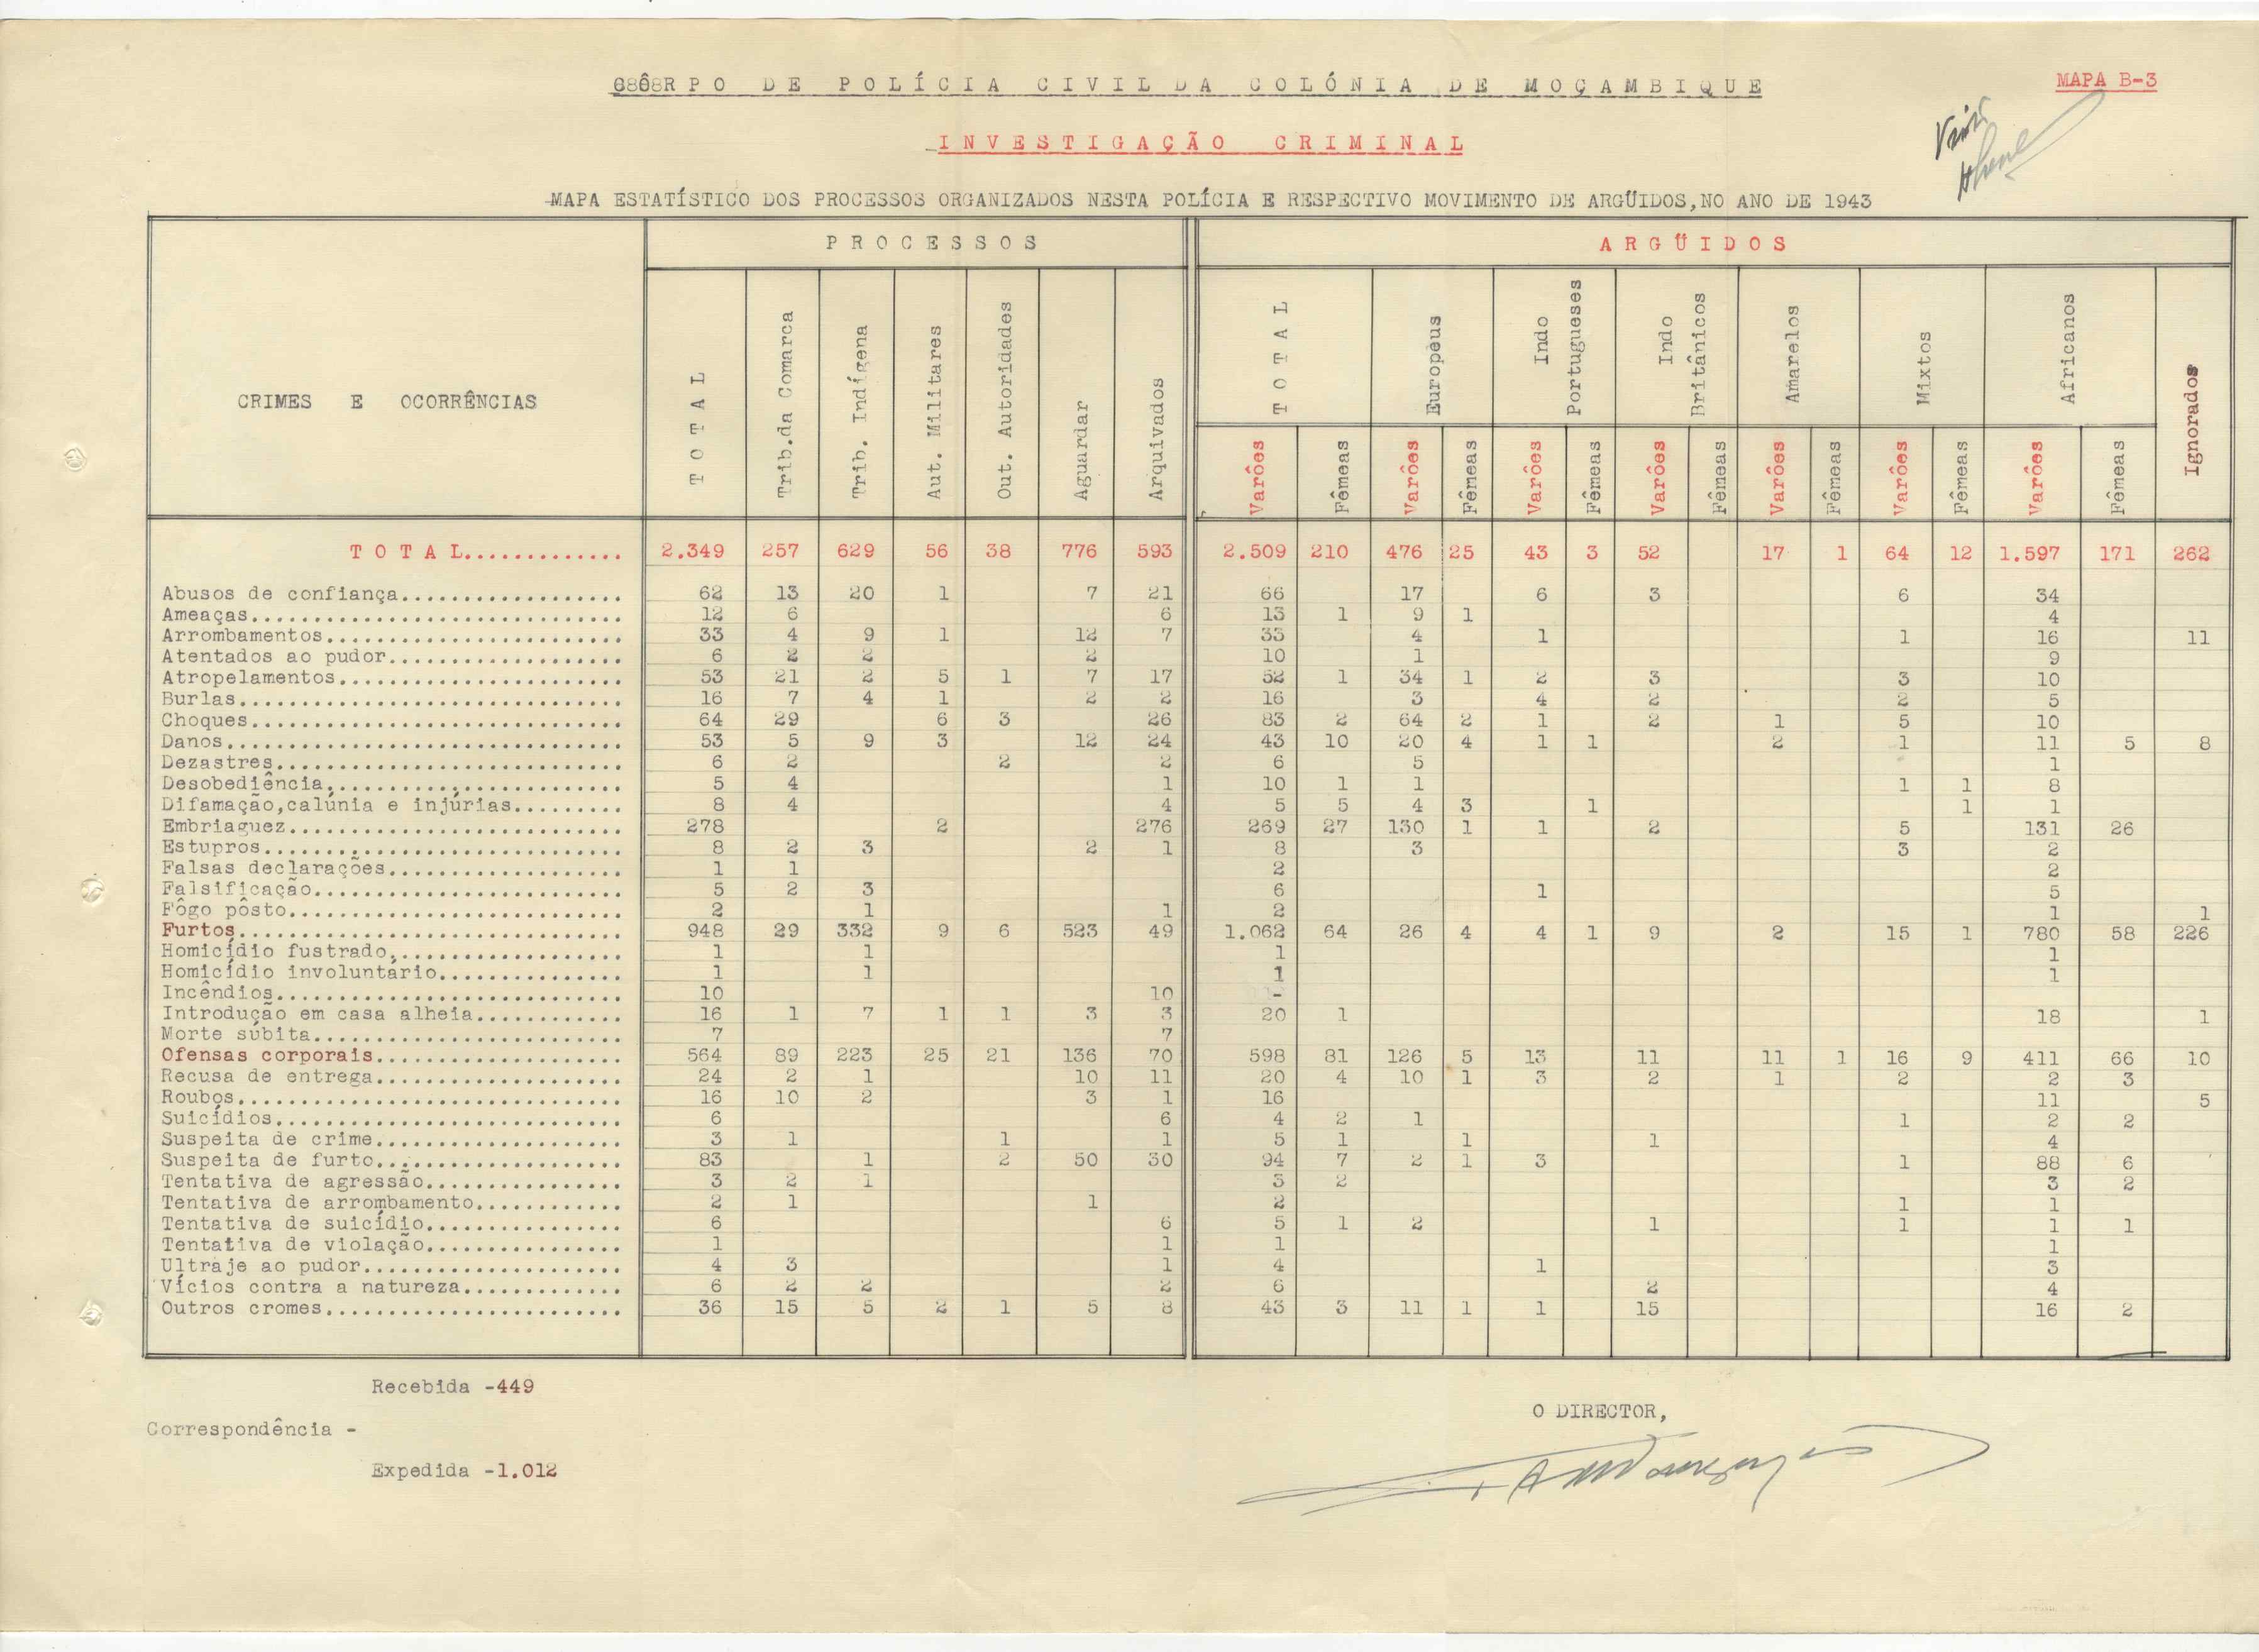 CÔRPO DE POLÍCIA CIVIL DA COLÓNIA DE MOÇAMBIQUE
MAPA B-3
INVESTIGAÇÃO CRIMINAL
MAPA ESTATÍSTICO DOS PROCESSOS ORGANIZADOS NESTA POLÍCIA E RESPECTIVO MOVIMENTO DE ARGÜIDOS, NO ANO DE 1943
PROCESSOS ARGÜIDOS
CRIMES E OCORRÊNCIAS TOTAL Trib.da Comarca Trib. Indígena Aut. Militares Out. Autoridades Aguardar Arquivados TOTAL Europeus Indo Portugueses Indo Británicos Amarelos Mixtos Africanos Ignorados
Varões Fêmeas Varões Fêmeas Varões Fêmeas Varões Fêmeas Varões Fêmeas Varões Fêmeas Varões Fêmeas
TOTAL............. 2.349 257 629 56 38 776 593 2.509 210 476 25 43 3 52 17 1 64 12 1.597 171 262
Abusos de confiança.................. 62 13 20 1 7 21 66 17 6 3 6 34
Ameaças.............................. 12 6 6 13 1 9 1 4
Arrombamentos........................ 33 4 9 1 12 7 33 4 1 1 16 11
Atentados ao pudor................... 6 2 2 2 10 1 9
Atropelamentos....................... 53 21 2 5 1 7 17 52 1 34 1 2 3 3 10
Burlas............................... 16 7 4 1 2 2 16 3 4 2 2 5
Choques.............................. 64 29 6 3 26 83 2 64 2 1 2 1 5 10
Danos................................ 53 5 9 3 12 24 43 10 20 4 1 1 2 1 11 5 8
Dezastres............................ 6 2 2 2 6 5 1
Desobediência........................ 5 4 1 10 1 1 1 1 8
Difamação,calúnia e injúrias......... 8 4 4 5 5 4 3 1 1 1
Embriaguez........................... 278 2 276 269 27 130 1 1 2 5 131 26
Estupros............................. 8 2 3 2 1 8 3 3 2
Falsas declarações................... 1 1 2 2
Falsificação......................... 5 2 3 6 1 5
Fôgo pôsto........................... 2 1 1 2 1 1
Furtos............................... 948 29 332 9 6 523 49 1.062 64 26 4 4 1 9 2 15 1 780 58 226
Homicídio fustrado................... 1 1 1 1
Homicídio involuntário............... 1 1 1 1
Incêndios............................ 10 10 -
Introdução em casa alheia............ 16 1 7 1 1 3 3 20 1 18 1
Morte súbita......................... 7 7
Ofensas corporais.................... 564 89 223 25 21 136 70 598 81 126 5 13 11 11 1 16 9 411 66 10
Recusa de entrega.................... 24 2 1 10 11 20 4 10 1 3 2 1 2 2 3
Roubos............................... 16 10 2 3 1 16 11 5
Suicídios............................ 6 6 4 2 1 1 2 2
Suspeita de crime.................... 3 1 1 1 5 1 1 1 4
Suspeita de furto.................... 83 1 2 50 30 94 7 2 1 3 1 88 6
Tentativa de agressão................ 3 2 1 3 2 3 2
Tentativa de arrombamento............ 2 1 1 2 1 1
Tentativa de suicídio................ 6 6 5 1 2 1 1 1 1
Tentativa de violação................ 1 1 1 1
Ultraje ao pudor..................... 4 3 1 4 1 3
Vícios contra a natureza............. 6 2 2 2 6 2 4
Outros cromes........................ 36 15 5 2 1 5 8 43 3 11 1 1 15 16 2
Recebida -449
Correspondência -
Expedida -1.012
O DIRECTOR,